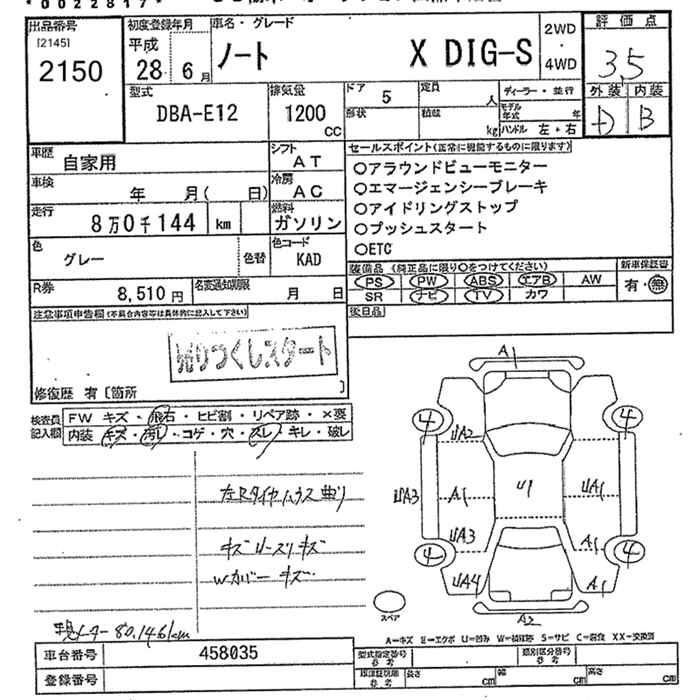 *0022817*
出品番号
[2145]
2150
初度登録年月
平成
28 年 6 月
車名・グレード
ノート X DIG-S
2WD
・
4WD
評価点
3.5
外装 内装
D B
型式
DBA-E12
排気量
1200
CC
ドア
5
形状
定員
人
積載
kg
ディーラー・並行
モデル年式 年
ハンドル 左・右
車歴
自家用
シフト
AT
車検
年 月( 日)
冷房
AC
走行
8万0千144 km
燃料
ガソリン
色
グレー
色替
色コード
KAD
R券
8,510円
名変通知期限
月 日
セールスポイント(正常に機能するものに限ります)
○アラウンドビューモニター
○エマージェンシーブレーキ
○アイドリングストップ
○プッシュスタート
○ETC
装備品 (純正品に限り○をつけてください)
新車保証書
PS PW ABS エアB AW
有・無
SR ナビ TV カワ
後日品
注意事項申告欄(不具合内容等は具体的に記入して下さい)
売りつくしスタート
修復歴 有〔箇所 〕
検査員
記入欄
FW キズ・飛石・ヒビ割・リペア跡・×要
内装 キズ・汚レ・コゲ・穴・スレ・キレ・破レ
左Rタイヤハウス曲り
キズ
Wカバーキズ
メーター80,146km
A1
4
4
UA2
UA3
A1
U1
UA1
UA3
A1
4
4
UA4
A1
A2
スペア
A=キズ E=エクボ U=凹み W=補修跡 S=サビ C=腐食 XX=交換済
車台番号
458035
登録番号
型式指定番号
参考
類別区分番号
参考
長さ cm
幅 cm
高さ cm